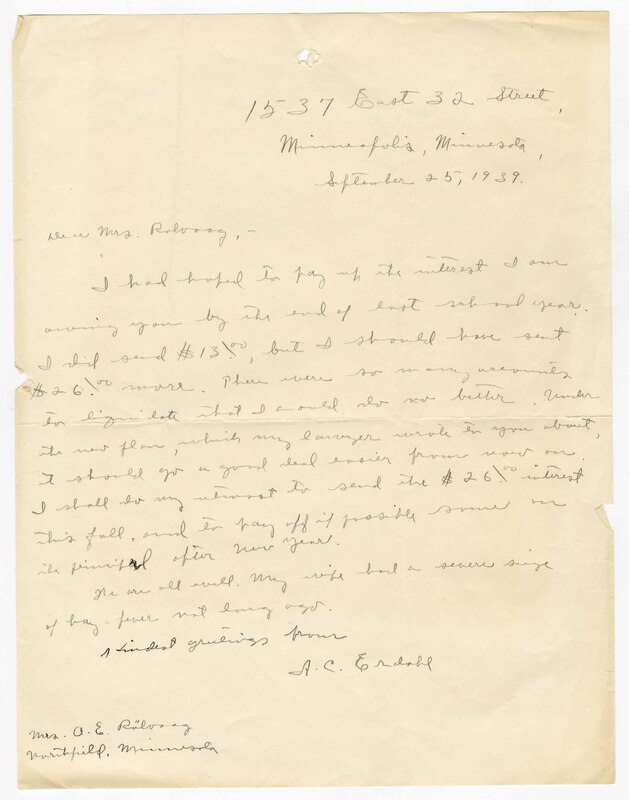 1537 East 32 Street,
Minneapolis, Minnesota,
September 25, 1939.
Dear Mrs. Rölvaag, –
I had hoped to pay up the interest I am
owing you by the end of last school year.
I did send $13.00, but I should have sent
$26.00 more. There were so many accounts
to liquidate that I could do no better. Under
the new plan, which my lawyer wrote to you about,
it should go a good deal easier from now on.
I shall do my utmost to send the $26.00 interest
this fall, and to pay off if possible some on
the principal after New Year.
We are all well. My wife had a severe siege
of hay-fever not long ago.
Kindest greetings from
A. C. Erdahl
Mrs. O. E. Rölvaag
Northfield, Minnesota